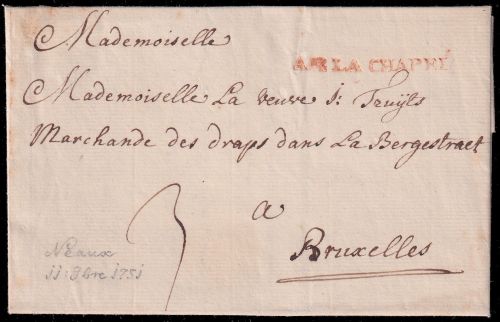 Mademoiselle
AIX LA CHAPEL
Mademoiselle La veuve J: Truijts
Marchande des draps dans La Bergestraet
3
a
Bruxelles
Neaux
11: 9bre 1751